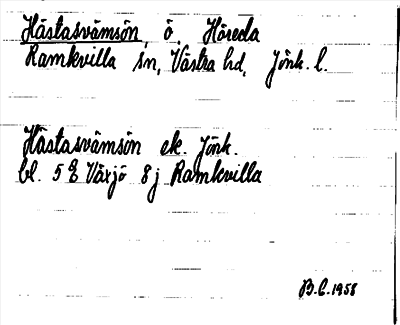 Hästasvämsön, ö, Höreda
Ramkvilla sn, Västra hd, Jönk. l.
Hästasvämsön ek. Jönk.
bl. 5 Växjö 8 j Ramkvilla
B.C. 1958